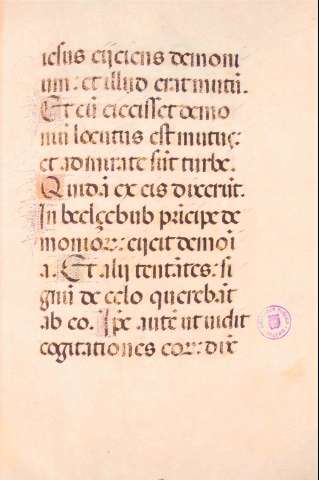 iesus eijciens demoni
um: et illud erat mutũ.
Et cũ eiecisset demo
niũ locutus est mutus:
et admirate sũt turbe.
Quidã ex eis dixerũt.
In beelçebub prĩcipe de
monioꝝ: eijcit demoñi
a. Et alij tentãtes: si
gnũ de celo querebãt
ab eo. Ip̃e autẽ ut uidit
cogitationes eoꝝ: dix̃